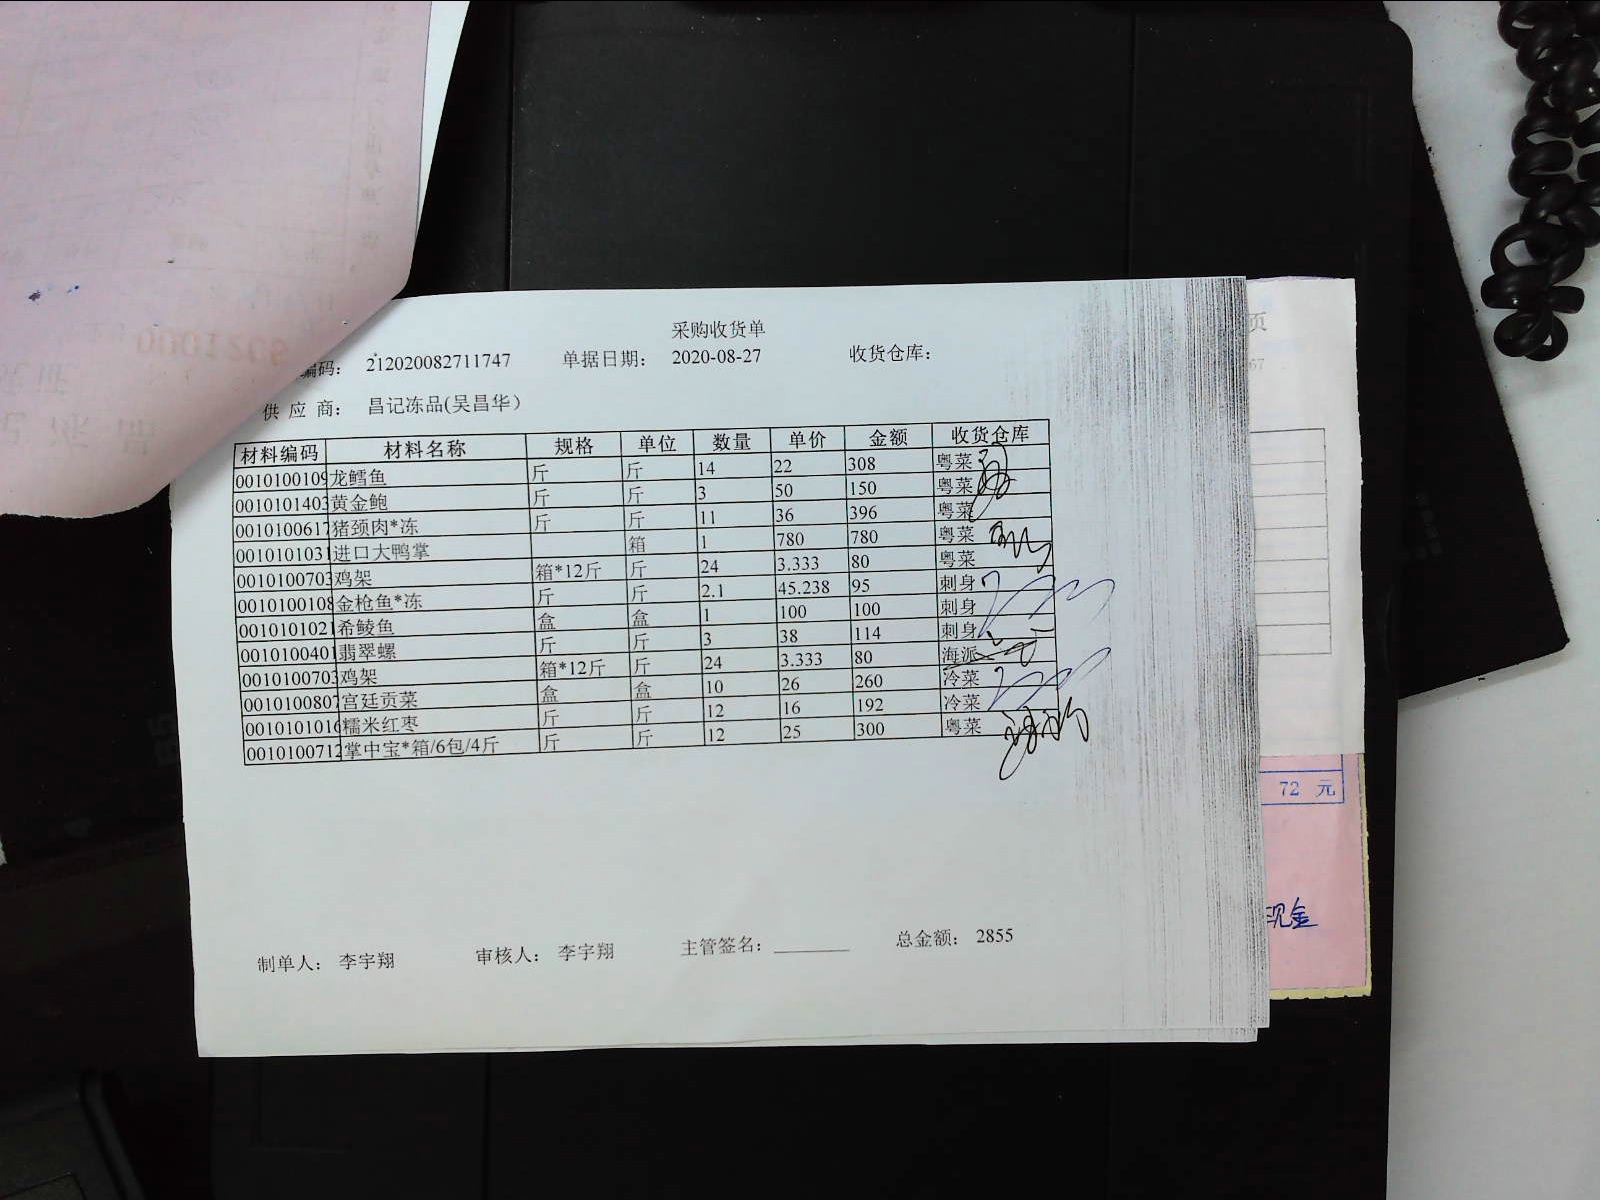 采购收货单
编码： 212020082711747 单据日期： 2020-08-27 收货仓库：
供 应 商： 昌记冻品(吴昌华)
材料编码 材料名称 规格 单位 数量 单价 金额 收货仓库
0010100109 龙鳕鱼 斤 斤 14 22 308 粤菜
0010101403 黄金鲍 斤 斤 3 50 150 粤菜
0010100617 猪颈肉*冻 斤 斤 11 36 396 粤菜
0010101031 进口大鸭掌 箱 1 780 780 粤菜
0010100703 鸡架 箱*12斤 斤 24 3.333 80 粤菜
0010100108 金枪鱼*冻 斤 斤 2.1 45.238 95 刺身
0010101021 希鲮鱼 盒 盒 1 100 100 刺身
0010100401 翡翠螺 斤 斤 3 38 114 刺身
0010100703 鸡架 箱*12斤 斤 24 3.333 80 海派
0010100807 宫廷贡菜 盒 盒 10 26 260 冷菜
0010101016 糯米红枣 斤 斤 12 16 192 冷菜
0010100712 掌中宝*箱/6包/4斤 斤 斤 12 25 300 粤菜
制单人： 李宇翔 审核人： 李宇翔 主管签名： 总金额： 2855
页
67
72 元
现金